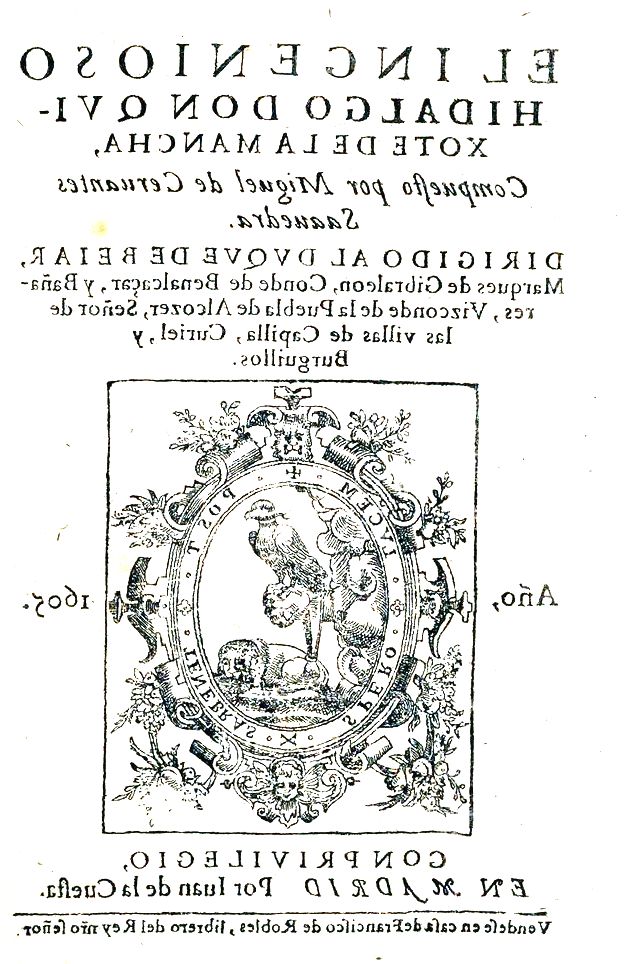 EL INGENIOSO
HIDALGO DON QVI-
XOTE DE LA MANCHA,
Compueſto por Miguel de Ceruantes
Saauedra.
DIRIGIDO AL DVQVE DE BEIAR,
Marques de Gibraleon, Conde de Benalcaçar, y Baña-
res, Vizconde de la Puebla de Alcozer, Señor de
las villas de Capilla, Curiel, y
Burguillos.
POST TENEBRAS SPERO LVCEM
Año, 1605.
CON PRIVILEGIO,
EN MADRID Por Iuan de la Cueſta.
Vendeſe en caſa de Franciſco de Robles, librero del Rey nr̃o ſeñor.